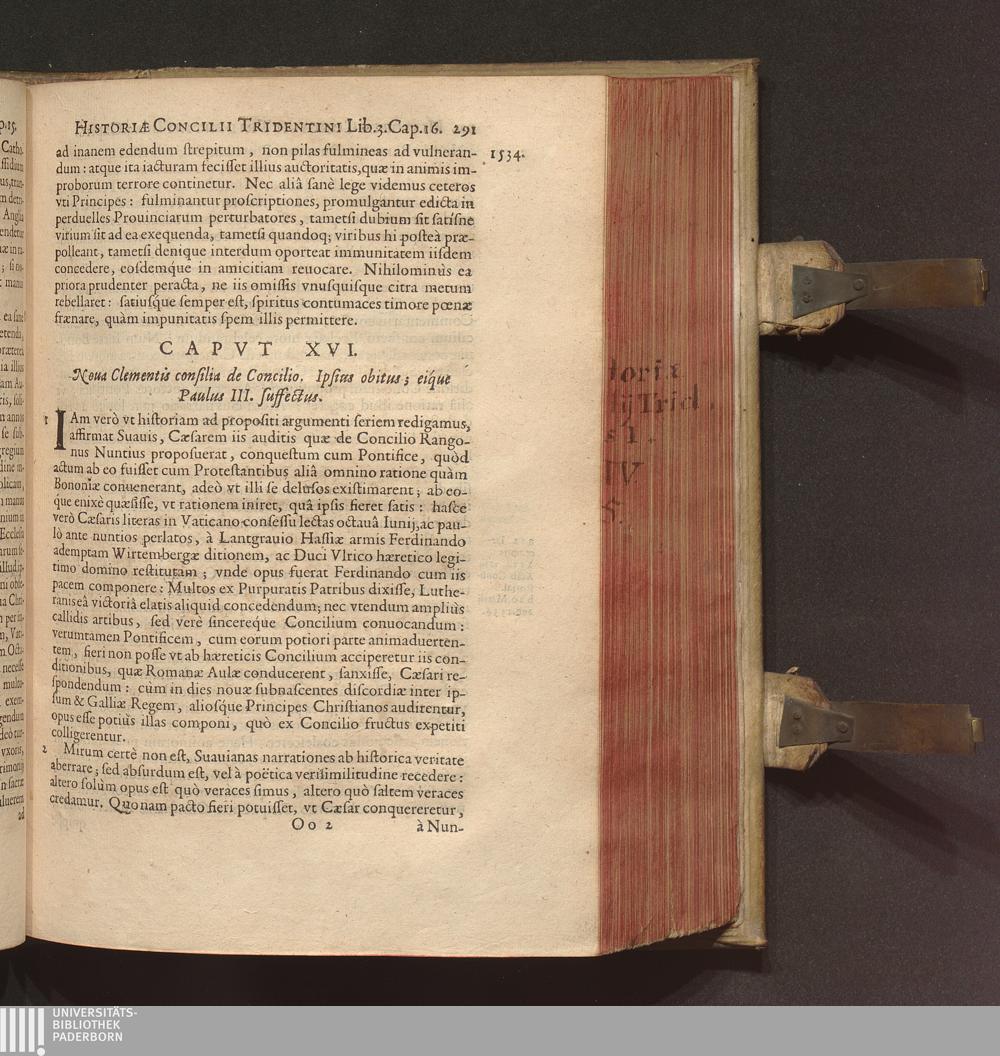 HISTORIÆ CONCILII TRIDENTINI Lib.3.Cap.16. 291
1534.
ad inanem edendum ſtrepitum, non pilas fulmineas ad vulneran-
dum: atque ita iacturam feciſſet illius auctoritatis, quæ in animis im-
proborum terrore continetur. Nec aliâ ſanè lege videmus ceteros
vti Principes: fulminantur proſcriptiones, promulgantur edicta in
perduelles Prouinciarum perturbatores, tametſi dubium ſit ſatiſne
virium ſit ad ea exequenda, tametſi quandoq; viribus hi poſteà præ-
polleant, tametſi denique interdum oporteat immunitatem iiſdem
concedere, eoſdemque in amicitiam reuocare. Nihilominùs ea
priora prudenter peracta, ne iis omiſſis vnuſquiſque citra metum
rebellaret: ſatiuſque ſemper eſt, ſpiritus contumaces timore pœnæ
frænare, quàm impunitatis ſpem illis permittere.
CAPVT XVI.
Noua Clementis conſilia de Concilio. Ipſius obitus; eíque
Paulus III. ſuffectus.
1 IAm verò vt hiſtoriam ad propoſiti argumenti ſeriem redigamus,
affirmat Suauis, Cæſarem iis auditis quæ de Concilio Rango-
nus Nuntius propoſuerat, conqueſtum cum Pontifice, quòd
actum ab eo fuiſſet cum Proteſtantibus aliâ omnino ratione quàm
Bononiæ conuenerant, adeò vt illi ſe deluſos exiſtimarent; ab eo-
que enixè quæſiſſe, vt rationem iniret, quâ ipſis fieret ſatis: haſce
verò Cæſaris literas in Vaticano conſeſſu lectas octauâ Iunij, ac pau-
lò ante nuntios perlatos, à Lantgrauio Haſſiæ armis Ferdinando
ademptam Wirtembergæ ditionem, ac Duci Vlrico hæretico legi-
timo domino reſtitutam; vnde opus fuerat Ferdinando cum iis
pacem componere: Multos ex Purpuratis Patribus dixiſſe, Luthe-
ranis eâ victoriâ elatis aliquid concedendum; nec vtendum ampliùs
callidis artibus, ſed verè ſincereque Concilium conuocandum:
verumtamen Pontificem, cum eorum potiori parte animaduerten-
tem, fieri non poſſe vt ab hæreticis Concilium acciperetur iis con-
ditionibus, quæ Romanæ Aulæ conducerent, ſanxiſſe, Cæſari re-
ſpondendum: cùm in dies nouæ ſubnaſcentes diſcordiæ inter ip-
ſum & Galliæ Regem, alioſque Principes Chriſtianos audirentur,
opus eſſe potiùs illas componi, quò ex Concilio fructus expetiti
colligerentur.
2 Mirum certè non eſt, Suauianas narrationes ab hiſtorica veritate
aberrare; ſed abſurdum eſt, vel à poëtica veriſimilitudine recedere:
altero ſolùm opus eſt quò veraces ſimus, altero quò ſaltem veraces
credamur. Quonam pacto fieri potuiſſet, vt Cæſar conquereretur,
Oo 2 à Nun-
UNIVERSITÄTS-
BIBLIOTHEK
PADERBORN